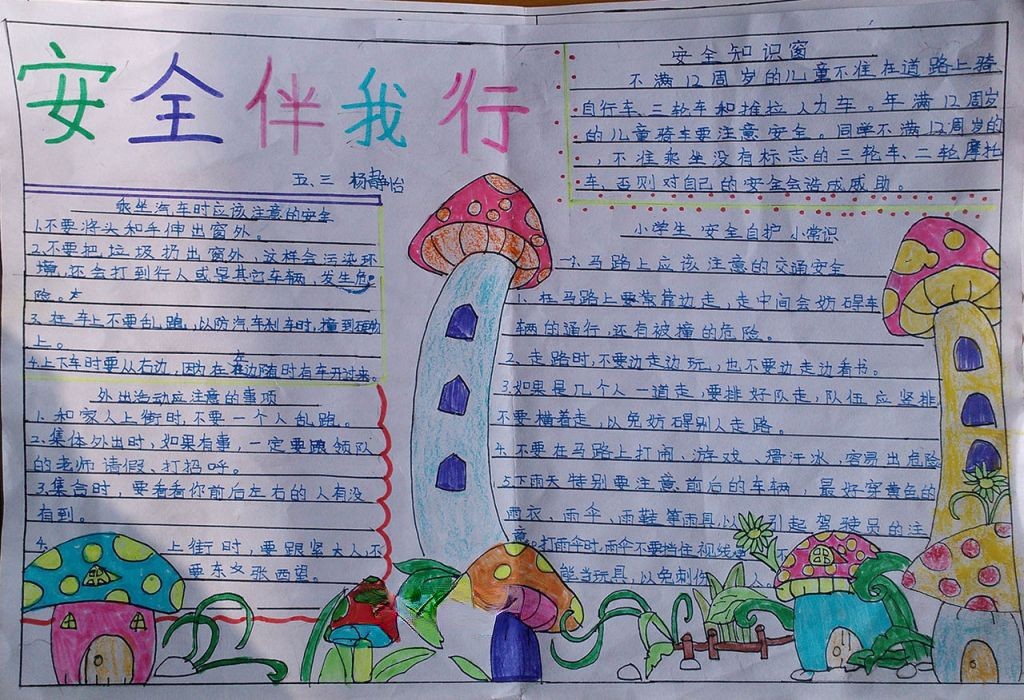 安全伴我行
五、三 杨静怡
乘坐汽车时应该注意的安全
1.不要将头和手伸出窗外。
2.不要把垃圾扔出窗外,这样会污染环
境,还会打到行人或是其它车辆,发生危
险。
3.在车上不要乱跑,以防汽车刹车时,撞到硬物
上。
4.上下车时要从右边,因为在左边随时有车开过来。
外出活动应注意的事项
1.和家人上街时,不要一个人乱跑。
2.集体外出时,如果有事,一定要跟领队
的老师请假、打招呼。
3.集合时,要看看你前后左右的人有没
有到。
4.上街时,要跟紧大人,不
要东久张西望。
安全知识窗
不满12周岁的儿童不准在道路上骑
自行车、三轮车和推拉人力车。年满12周岁
的儿童骑车要注意安全。同学不满12周岁的
,不准乘坐没有标志的三轮车、二轮摩托
车、否则对自己的安全会造成威胁。
小学生安全自护小常识
一、马路上应该注意的交通安全
1、在马路上要常靠边走,走中间会妨碍车
辆的通行,还有被撞的危险。
2、走路时,不要边走边玩,也不要边走边看书。
3.如果是几个人一道走,要排好队走,队伍应竖排
不要横着走,以免妨碍别人走路。
4.不要在马路上打闹、游戏、滑汗冰,容易出危险
5下雨天特别要注意前后的车辆,最好穿黄色的
雨衣、雨伞、雨鞋等雨具以 引起驾驶员的注
意。打雨伞时,雨伞不要挡住视线 不
能当玩具,以免刺伤 人。